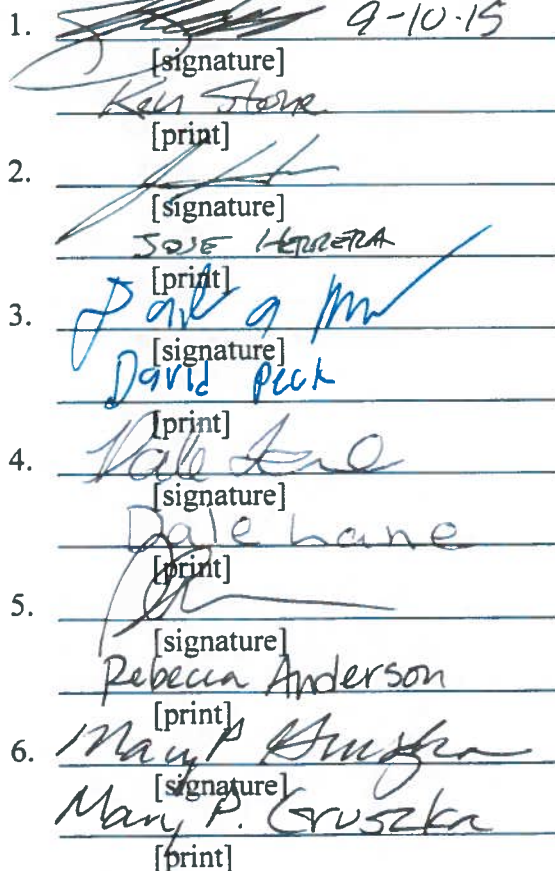 1. 9-10-15
[signature]
Ken Stone
[print]
2.
[signature]
JOSE HERRERA
[print]
3.
[signature]
David Peck
[print]
4. Dale Lane
[signature]
Dale Lane
[print]
5.
[signature]
Rebecca Anderson
[print]
6. Mary P Gruszka
[signature]
Mary P. Gruszka
[print]